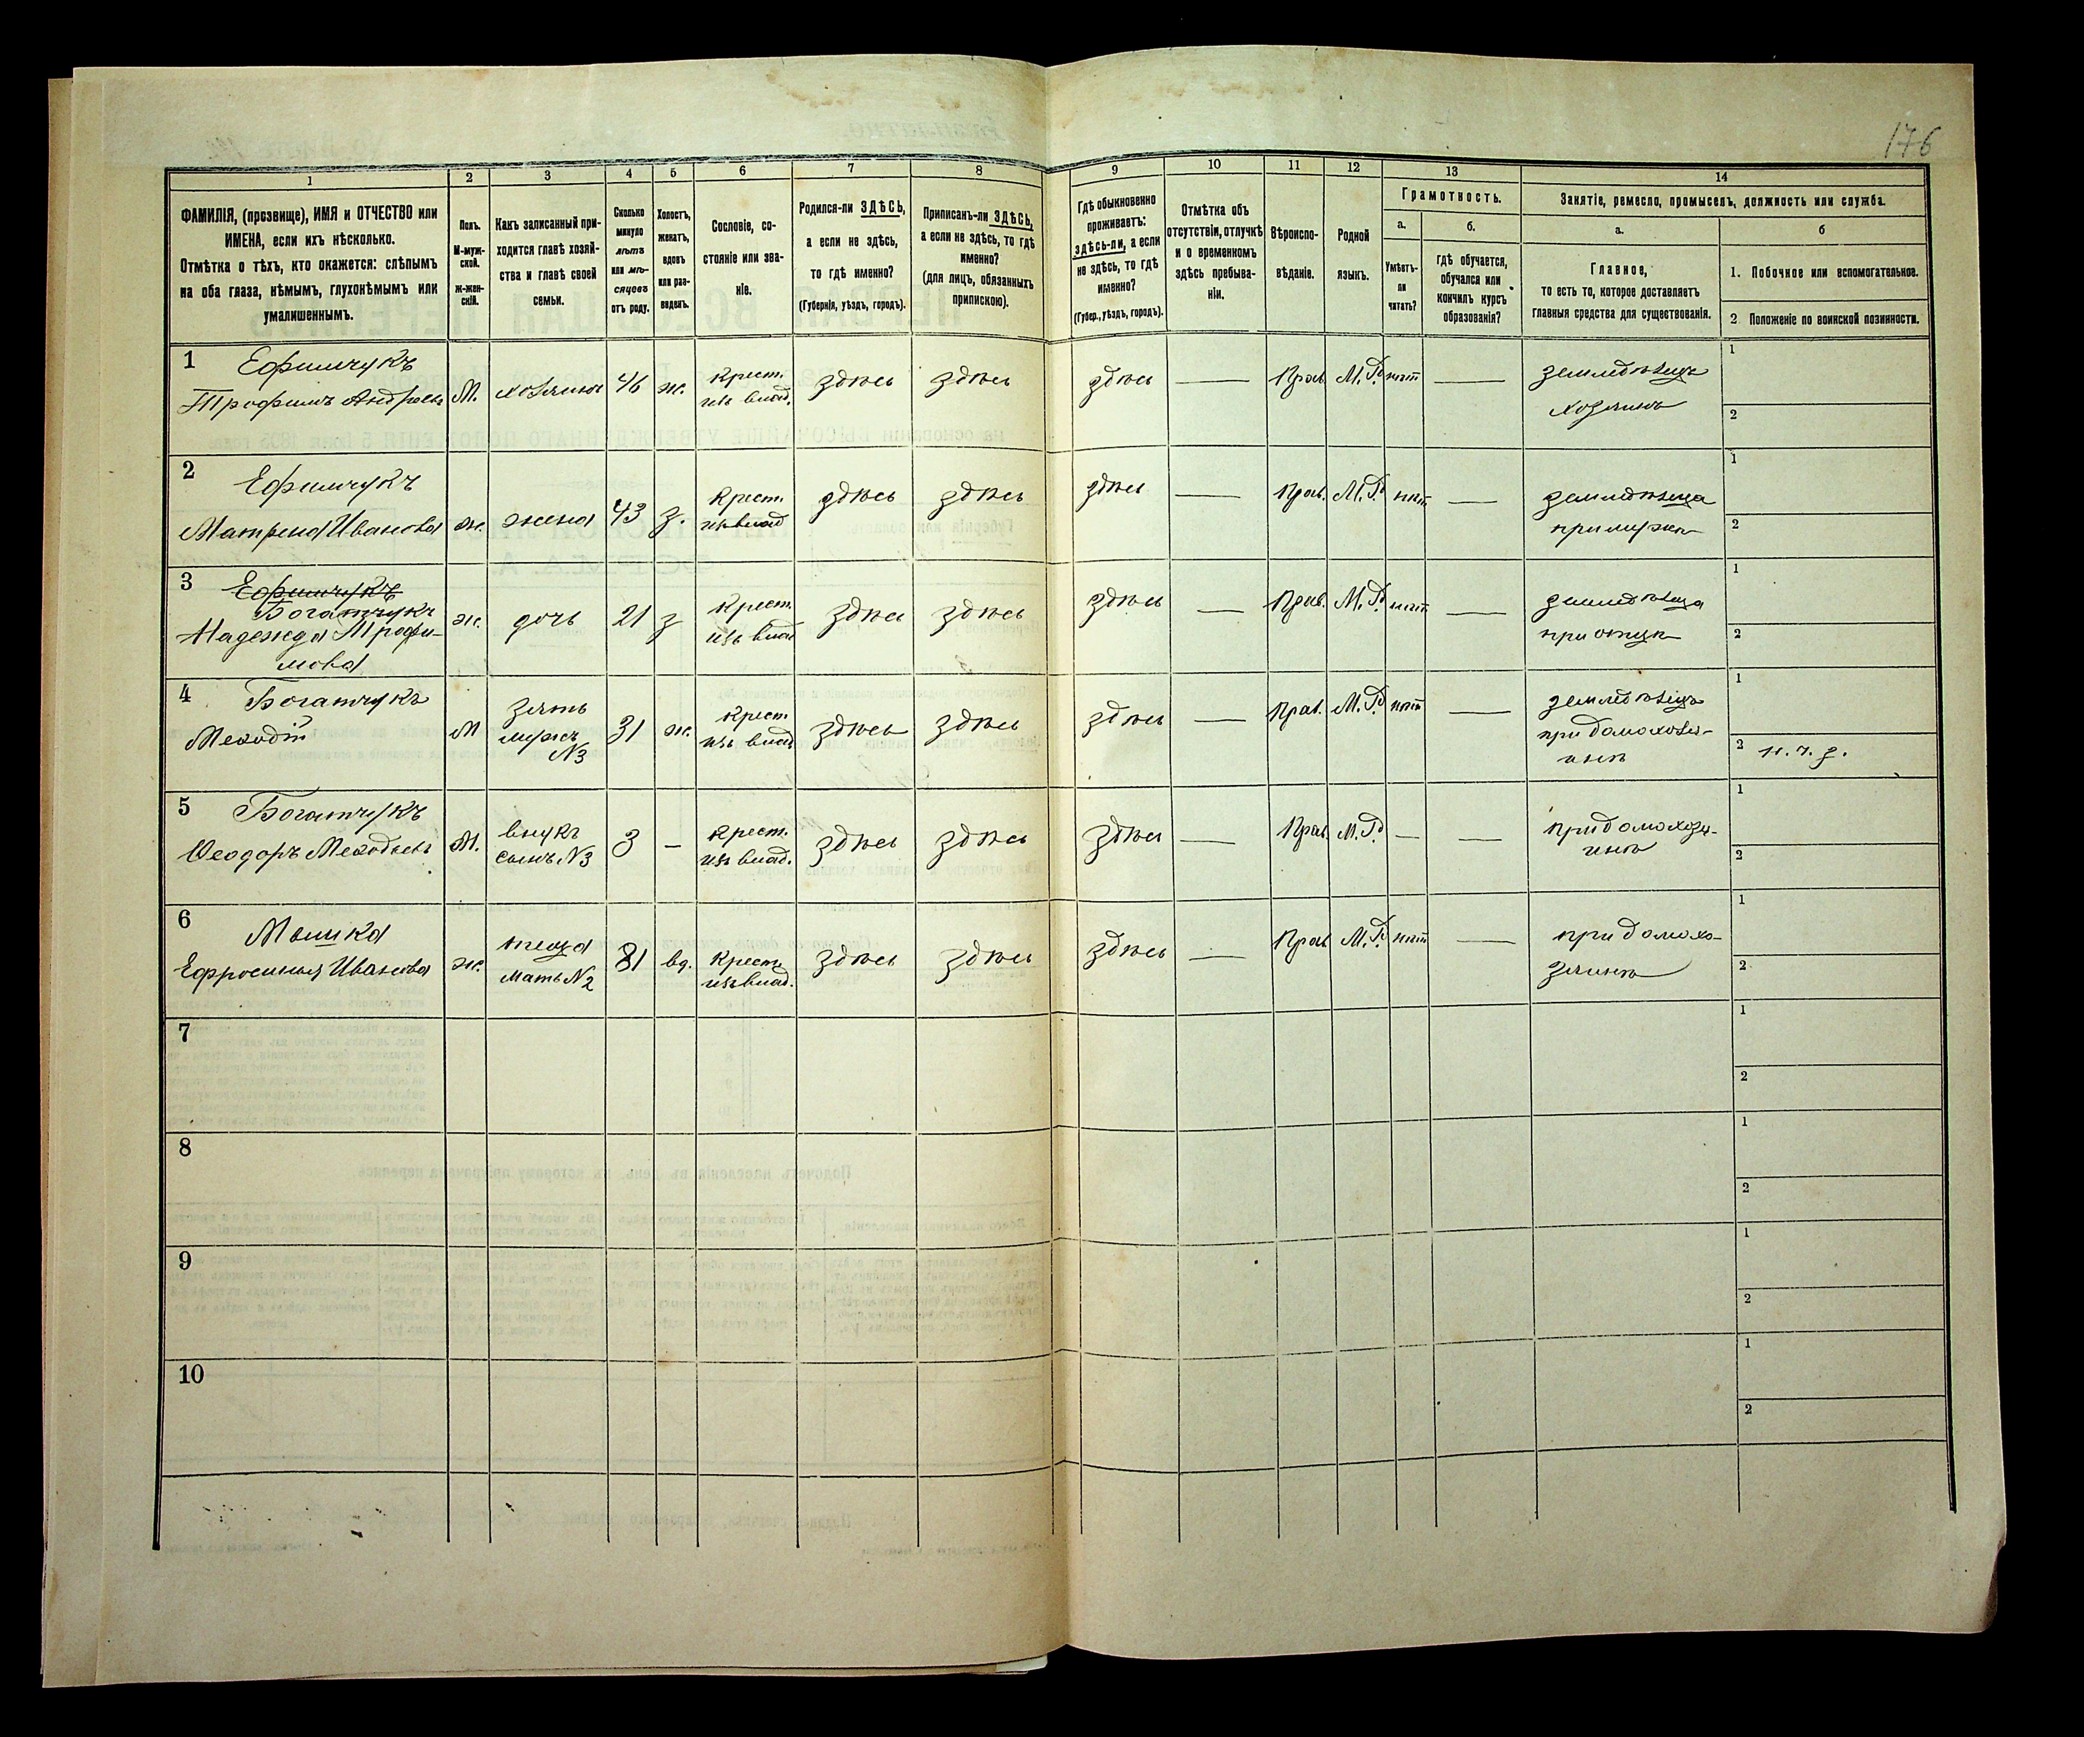 176
1 2 3 4 5 6 7 8 9 10 11 12 13 14
ФАМИЛІЯ, (прозвище), ИМЯ и ОТЧЕСТВО или
ИМЕНА, если ихъ нѣсколько.
Отмѣтка о тѣхъ, кто окажется: слѣпымъ
на оба глаза, нѣмымъ, глухонѣмымъ или
умалишеннымъ.
Полъ.
М-муж-
ской.
Ж-жен-
скій.
Какъ записанный при-
ходится главѣ хозяй-
ства и главѣ своей
семьи.
Сколько
минуло
лѣтъ
или мѣ-
сяцевъ
отъ роду.
Холостъ,
женатъ,
вдовъ
или раз-
веденъ.
Сословіе, со-
стояніе или зва-
ніе.
Родился-ли ЗДѢСЬ,
а если не здѣсь,
то гдѣ именно?
(Губернія, уѣздъ, городъ).
Приписанъ-ли ЗДѢСЬ,
а если не здѣсь, то гдѣ
именно?
(для лицъ, обязанныхъ
припискою).
Гдѣ обыкновенно
проживаетъ:
здѣсь-ли, а если
не здѣсь, то гдѣ
именно?
(Губер., уѣздъ, городъ).
Отмѣтка объ
отсутствіи, отлучкѣ
и о временномъ
здѣсь пребыва-
ніи.
Вѣроиспо-
вѣданіе.
Родной
языкъ.
Грамотность.
а.
Умѣетъ-
ли
читать?
б.
гдѣ обучается,
обучался или
кончилъ курсъ
образованія?
Занятіе, ремесло, промыселъ, должность или служба.
а.
Главное,
то есть то, которое доставляетъ
главныя средства для существованія.
б
1. Побочное или вспомогательное.
2 Положеніе по воинской повинности.
1 Ефимчукъ
Трофимъ Андреевъ М. хозяинъ 46 ж. Крест. изъ влад. здѣсь здѣсь здѣсь — Прав. М.Р. нѣтъ — земледѣлецъ
хозяинъ
1
2
2 Ефимчукъ
Матрена Иванова ж. жена 43 з. Крест. изъ влад здѣсь здѣсь здѣсь — Прав. М.Р. нѣтъ — земледѣлица
при мужѣ
1
2
3 Ефимчукъ
Богатчукъ
Надежда Трофи-
мова ж. дочь 21 з Крест. изъ влад здѣсь здѣсь здѣсь — Прав. М.Р. нѣтъ — земледѣлица
при отцѣ
1
2
4 Богатчукъ
Меѳодій М зять
мужъ
№3 31 ж. Крест изъ влад здѣсь здѣсь здѣсь — Прав. М.Р. нѣтъ — земледѣлецъ
при домохозя-
инѣ
1
2 н.ч.з.
5 Богатчукъ
Ѳеодоръ Меѳодьевъ М. внукъ
сынъ №3 3 — Крест. изъ влад. здѣсь здѣсь здѣсь — Прав. М.Р. — — при домохозя-
инѣ
1
2
6 Мошка
Ефросинья Иванова ж. теща
мать №2 81 вд. Крест. изъ влад. здѣсь здѣсь здѣсь — Прав М.Р. нѣтъ — при домохо-
зяинѣ
1
2
7
1
2
8
1
2
9
1
2
10
1
2